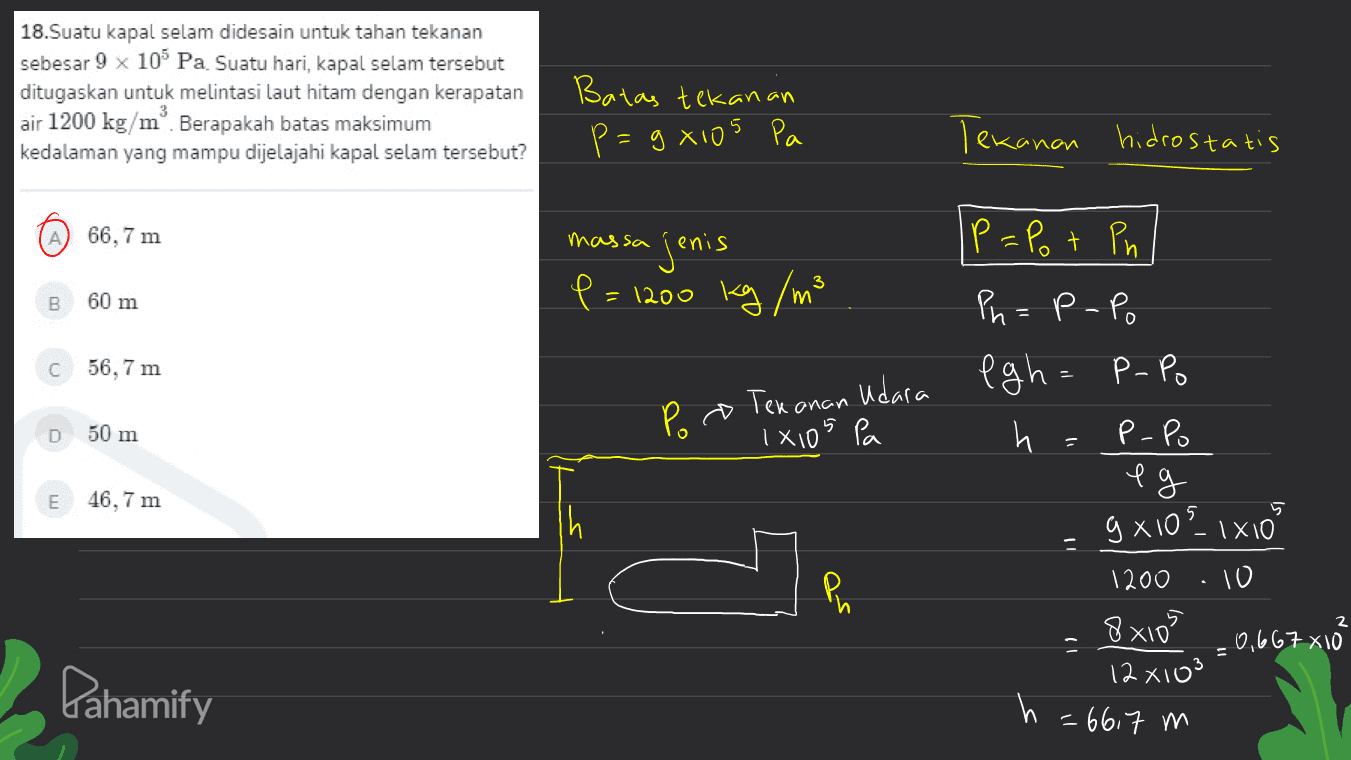 18.Suatu kapal selam didesain untuk tahan tekanan
sebesar 9 × 10⁵ Pa. Suatu hari, kapal selam tersebut
ditugaskan untuk melintasi laut hitam dengan kerapatan
air 1200 kg/m³. Berapakah batas maksimum
kedalaman yang mampu dijelajahi kapal selam tersebut?
A 66,7 m
B 60 m
C 56,7 m
D 50 m
E 46,7 m
Batas tekanan
P = 9 x10⁵ Pa
massa jenis
ρ = 1200 kg/m³
P₀ → Tekanan Udara
1x10⁵ Pa
h
Ph
Tekanan hidrostatis
P = P₀ + Ph
Ph = P - P₀
ρgh = P - P₀
h = P - P₀
ρg
= 9x10⁵ - 1x10⁵
1200 . 10
= 8x10⁵ = 0,667x10²
12x10³
h = 66,7 m
Pahamify